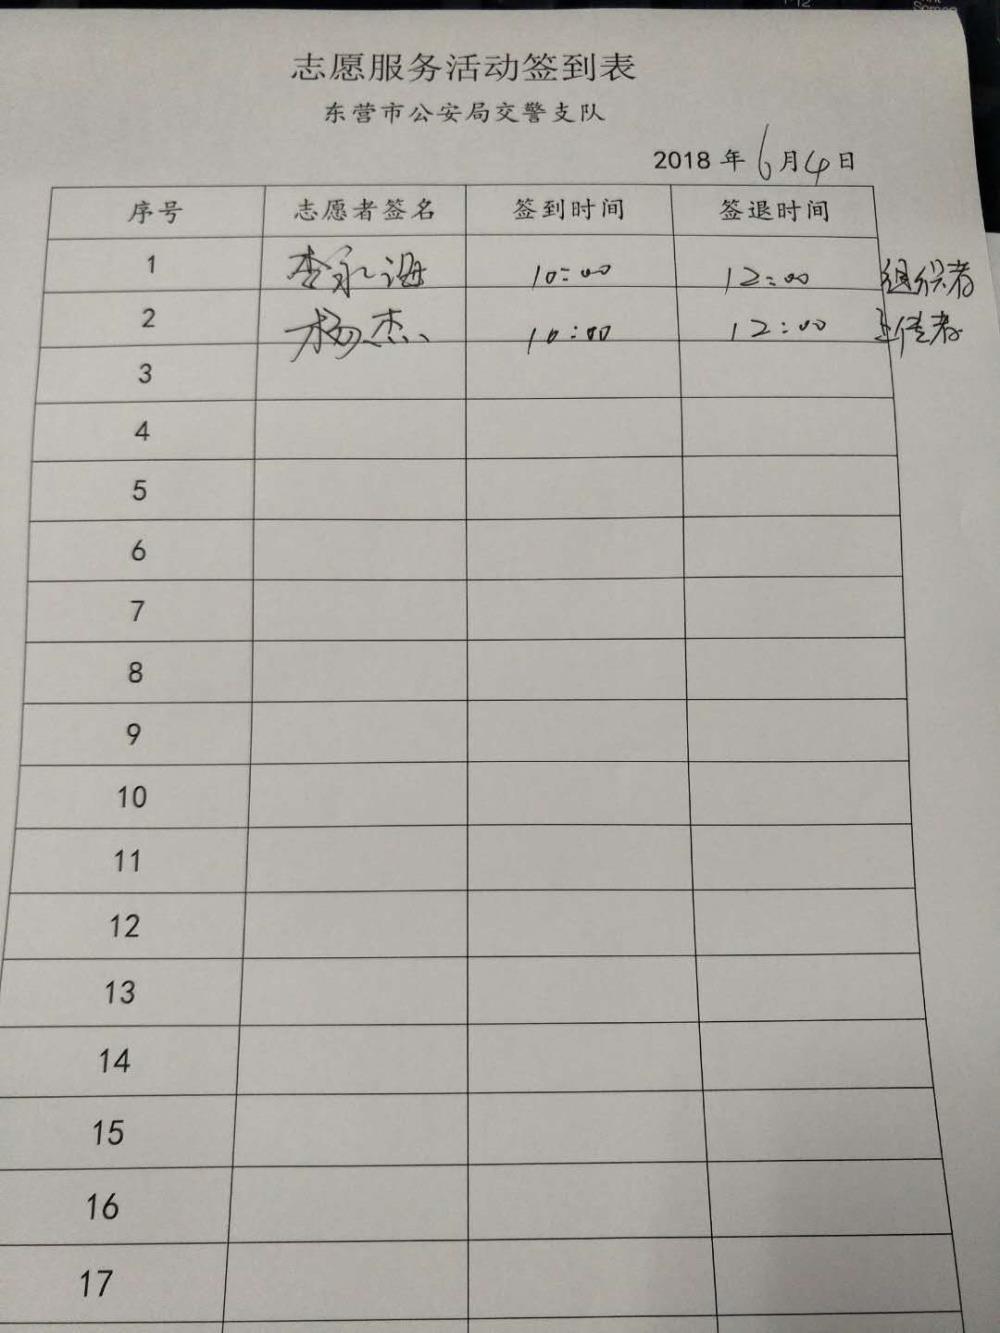 志愿服务活动签到表
东营市公安局交警支队
2018 年 6 月 4 日
序号 志愿者签名 签到时间 签退时间
1 李永海 10:00 12:00 组织者
2 杨杰 10:00 12:00 上传者
3
4
5
6
7
8
9
10
11
12
13
14
15
16
17